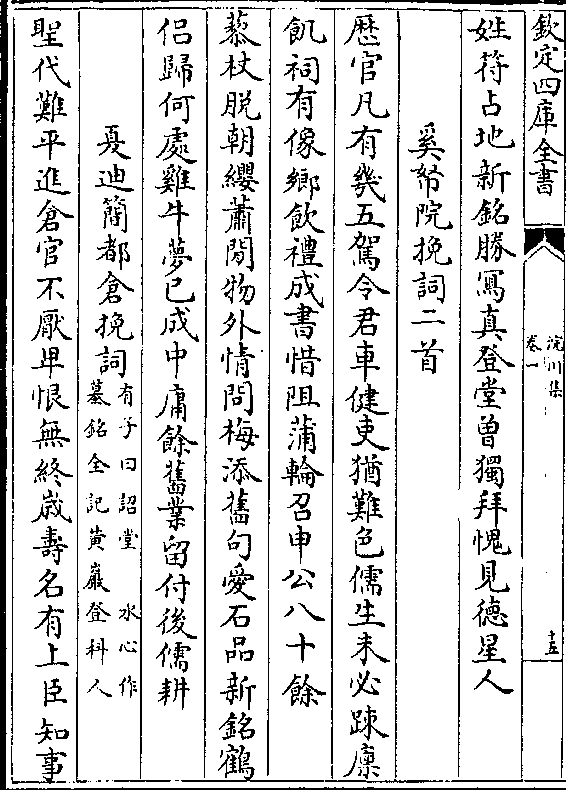 欽定四庫全書
浣川集
卷一
十五
姓符占地新銘勝寫真登堂曾獨拜愧見德星人
奚帑院挽詞二首
歷官凡有幾五駕令君車健吏猶難色儒生未必踈廩
飢祠有像鄉飲禮成書惜阻蒲輪召申公八十餘
藜杖脱朝纓蕭閒物外情問梅添舊句愛石品新銘鶴
侣歸何處雞牛夢已成中庸餘舊業留付後儒耕
夏迪簡都倉挽詞
有子曰詔堂 水心作
墓銘全記黃巖登科人
聖代難平進倉官不厭卑恨無終歲壽名有上臣知事